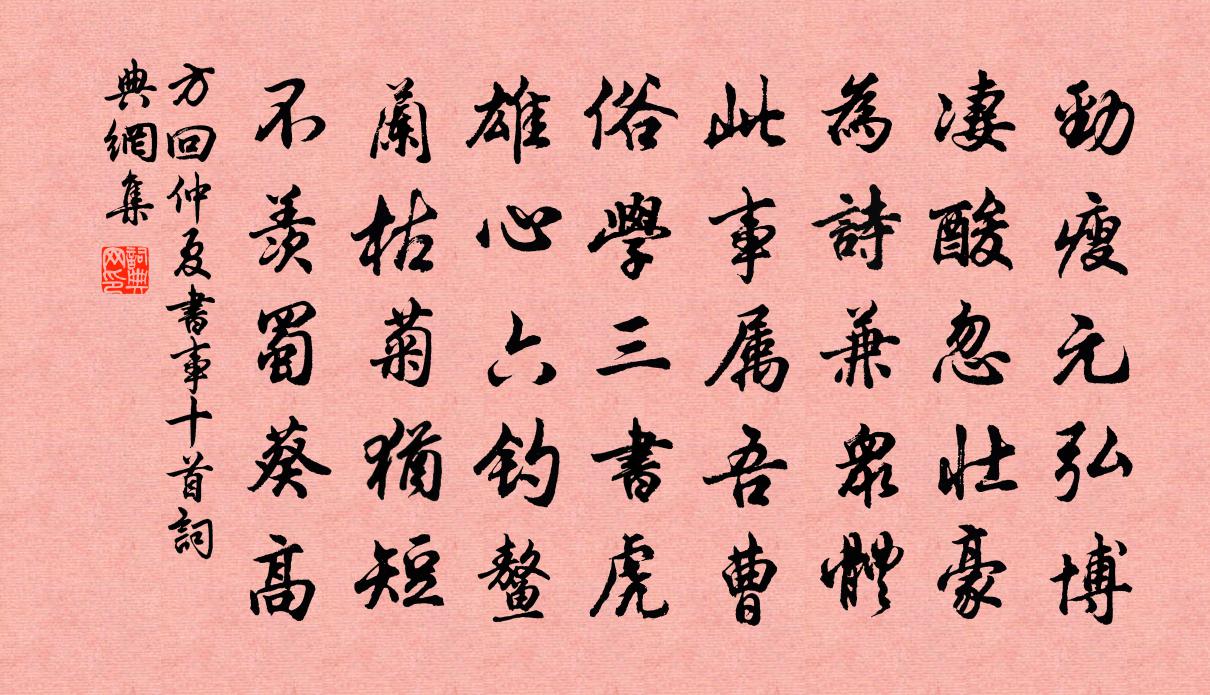 勁瘦元弘博
凄酸忽壯豪
為詩兼眾體
此事属吾曹
俗學三書虎
雄心六釣鼇
蘭枯菊猶短
不羨蜀葵高
方回仲夏書事十首詞
典網集
詞典
网印